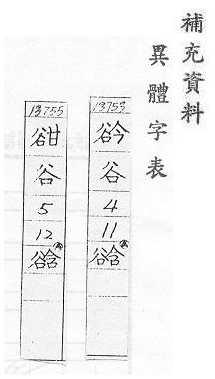 補充資料
異體字表
13753
谷
4
11
谽
13755
谷
5
12
谽